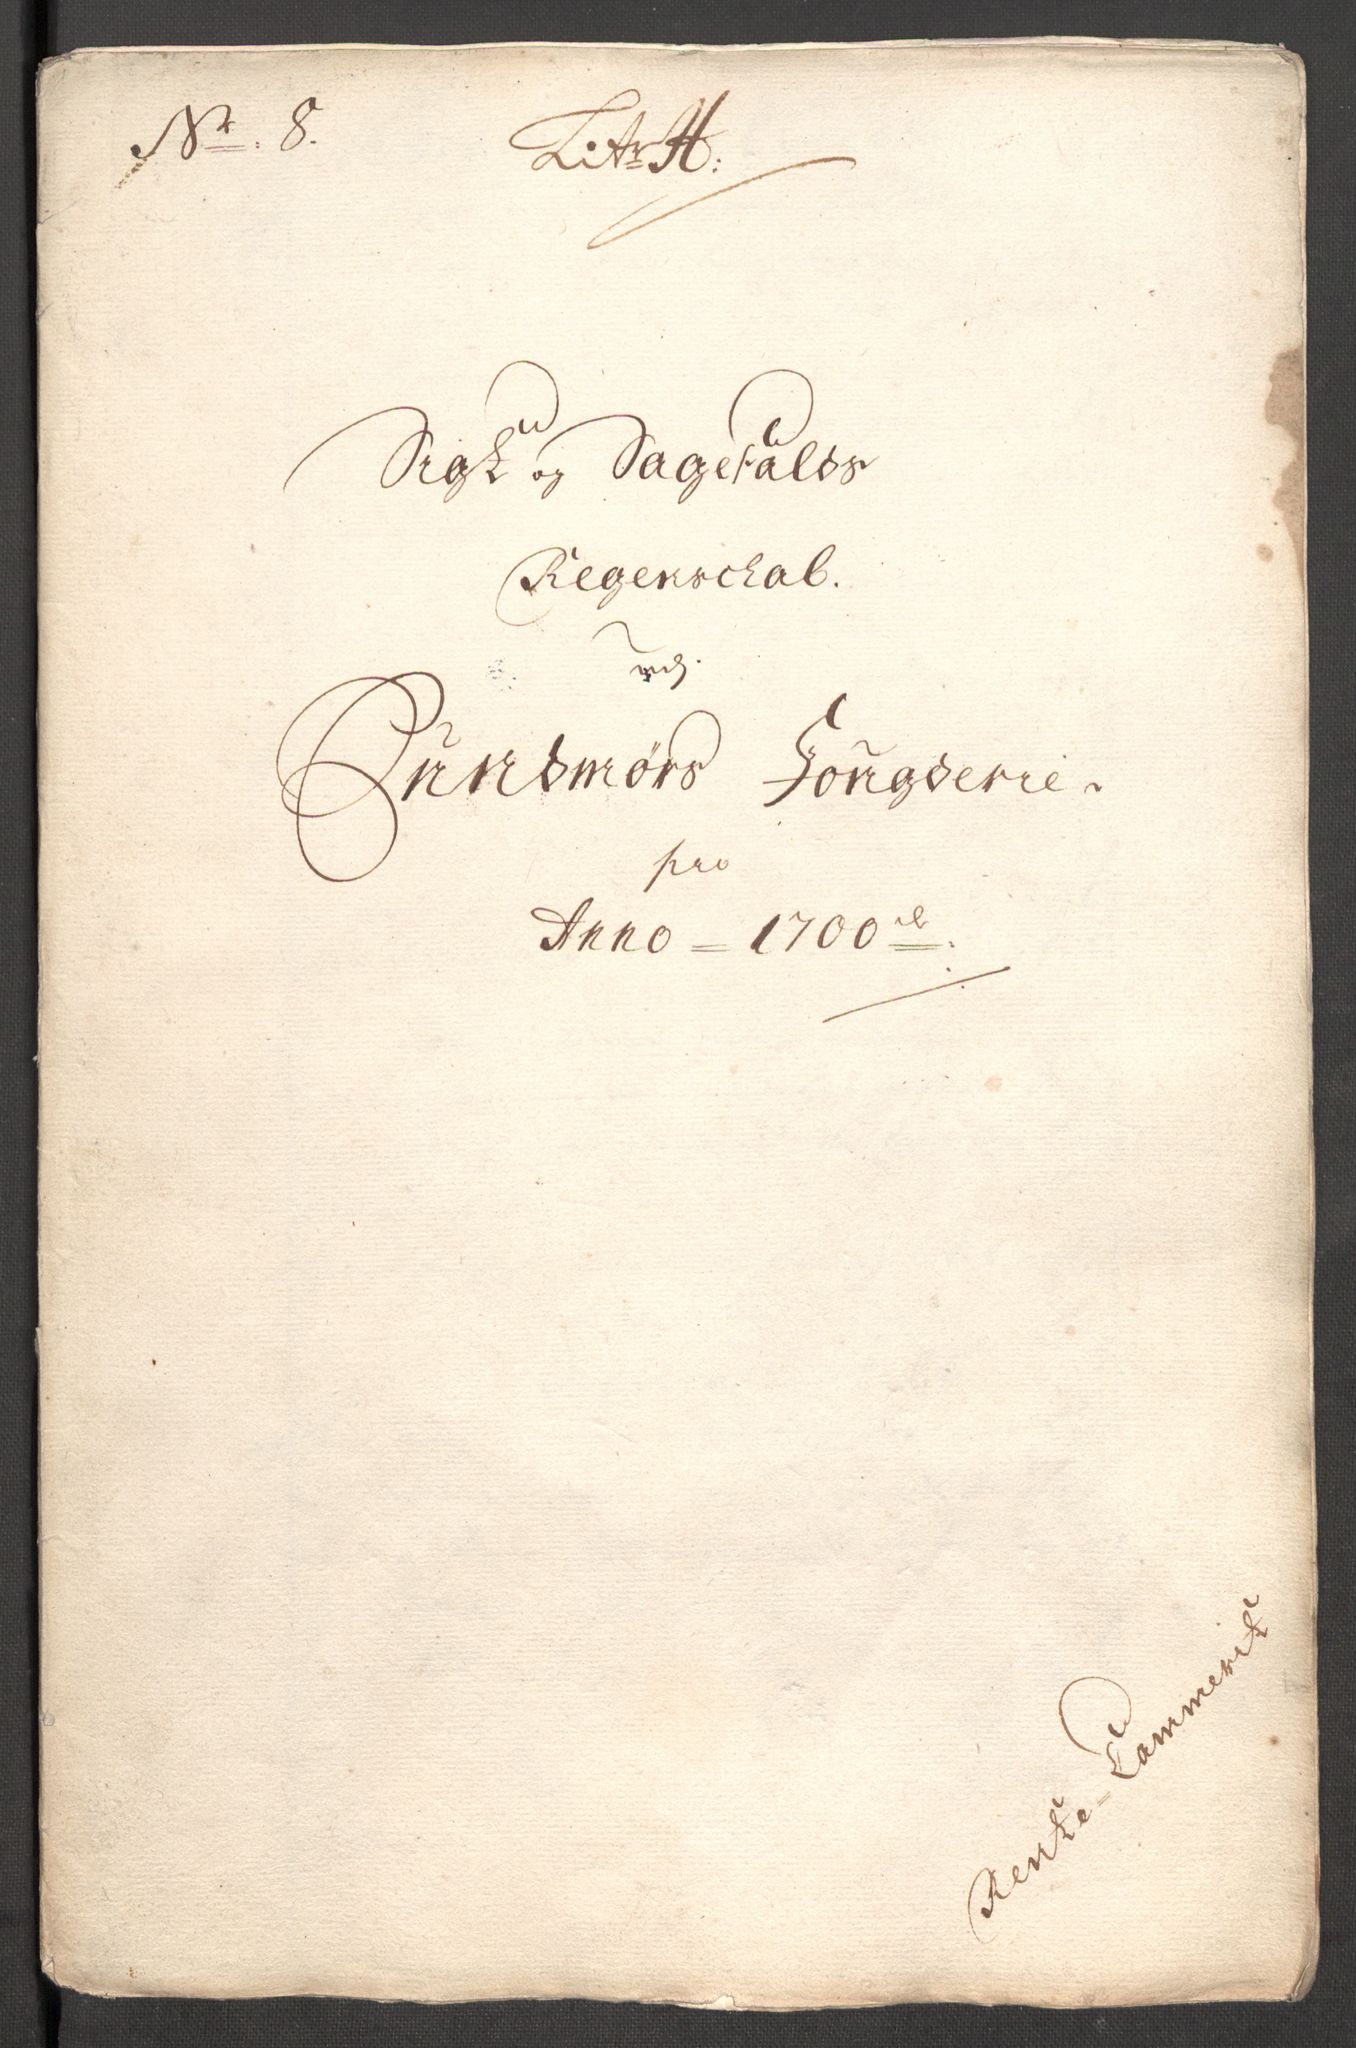 No. 8.
Litr H:
Sigt og Sagefalds
Regenschab.
ved
Sunndmørs Fougderie.
pro
Anno = 1700
Rente-Cammerit